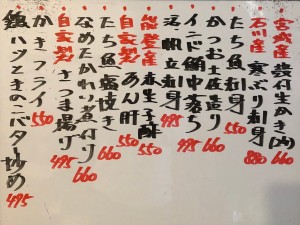 宮城産 殻付生かき(2ヶ) 660
石川産 寒ぶり刺身 880
たち魚刺身 550
かつお土佐造り 660
インド鮪中落ち 495
活〆帆立刺身 495
能登産 赤生子酢 550
自家製 あん肝 550
たち魚塩焼き 660
なめたかれい煮付け 660
自家製 さつま揚げ 495
かきフライ 550
鶏ハツときのこバター炒め 495